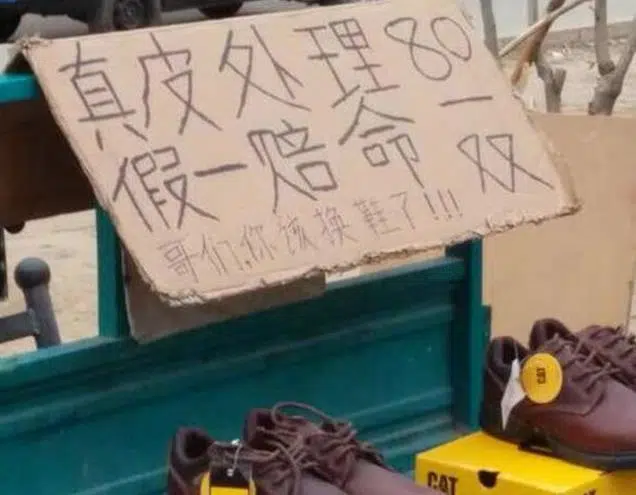 真皮处理80
假一赔命一双
哥们,你该换鞋了!!!
CAT
CAT